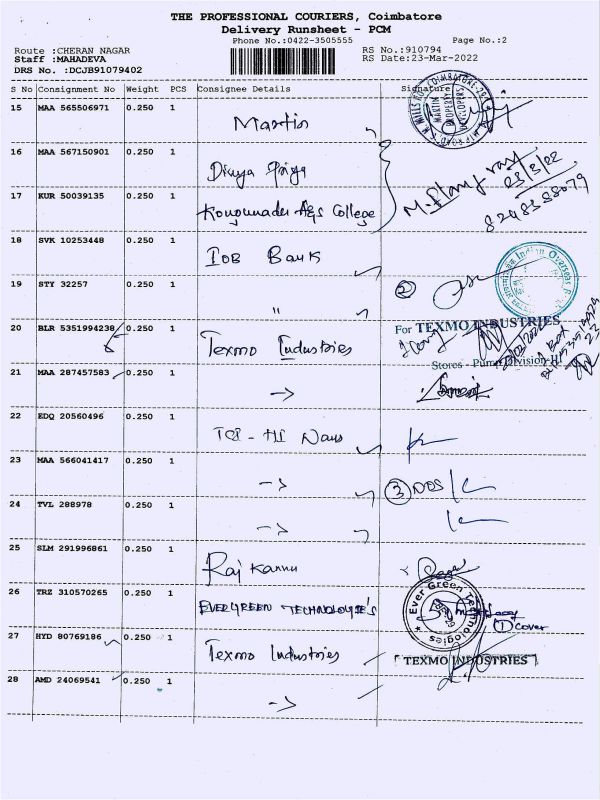 THE PROFESSIONAL COURIERS, Coimbatore
Delivery Runsheet - PCM
Phone No.:0422-3505555 Page No.:2
Route :CHERAN NAGAR RS No.:910794
Staff :MAHADEVA RS Date:23-Mar-2022
DRS No. :DCJB91079402
S No Consignment No Weight PCS Consignee Details Signature
15 MAA 565506971 0.250 1 Martin
MARTIN PROPERTY DEVELOPERS
16 MAA 567150901 0.250 1 Divya Priya
23/3/22
17 KUR 50039135 0.250 1 Kongunadu A&S College
8248388079
18 SVK 10253448 0.250 1 IOB Bank
Indian Overseas
19 STY 32257 0.250 1 " 2
20 BLR 5351994238 0.250 1 Texmo Industries
For TEXMO INDUSTRIES
Stores - Pump Division-III
21 MAA 287457583 0.250 1 →
22 EDQ 20560496 0.250 1
23 MAA 566041417 0.250 1 → 3 DOS
24 TVL 288978 0.250 1 →
25 SLM 291996861 0.250 1 Raj Kannu
26 TRZ 310570265 0.250 1 EVERGREEN TECHNOLOGIE'S
Ever Green Technologies
1 cover
27 HYD 80769186 0.250 1 Texmo Industries
TEXMO INDUSTRIES
28 AMD 24069541 0.250 1 →